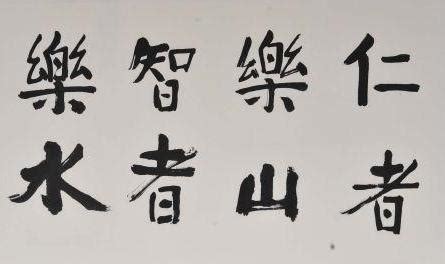 仁者
樂山
智者
樂水